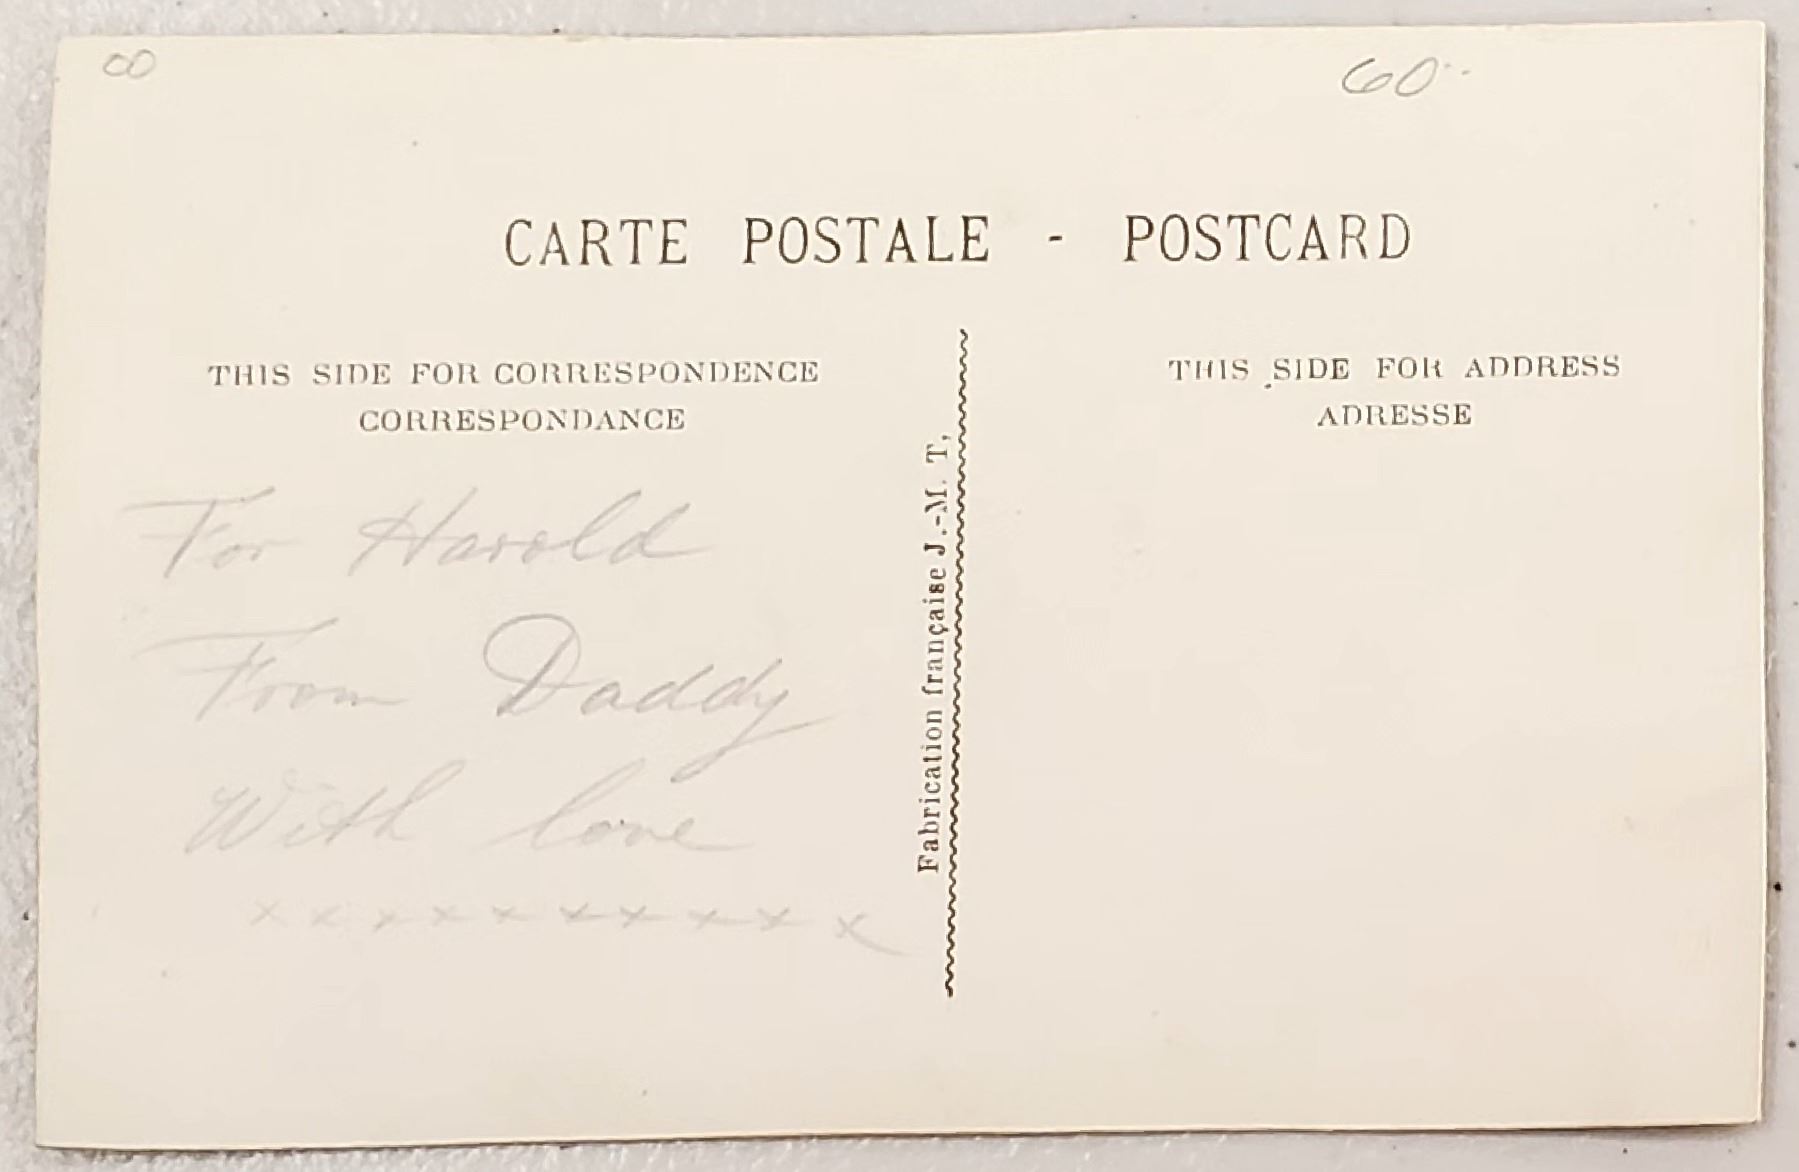 60
CARTE POSTALE - POSTCARD
THIS SIDE FOR CORRESPONDENCE
CORRESPONDANCE
THIS SIDE FOR ADDRESS
ADRESSE
For Harold
From Daddy
With love
x x x x x x x x x x
Fabrication française J.-M. T,